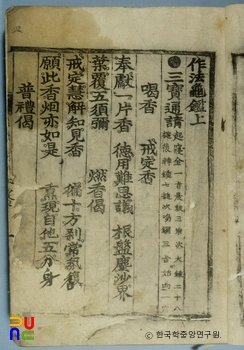 作法龜鑑上
三寶通請
喝香　戒定香
奉獻一片香　德用難思議　根盤塵沙界
葉覆五須彌　燃香偈
戒定慧解知見香　徧十方刹常氛馥
願此香烟亦如是　熏現自他五分身
普禮偈
PUNC
© 한국학중앙연구원.